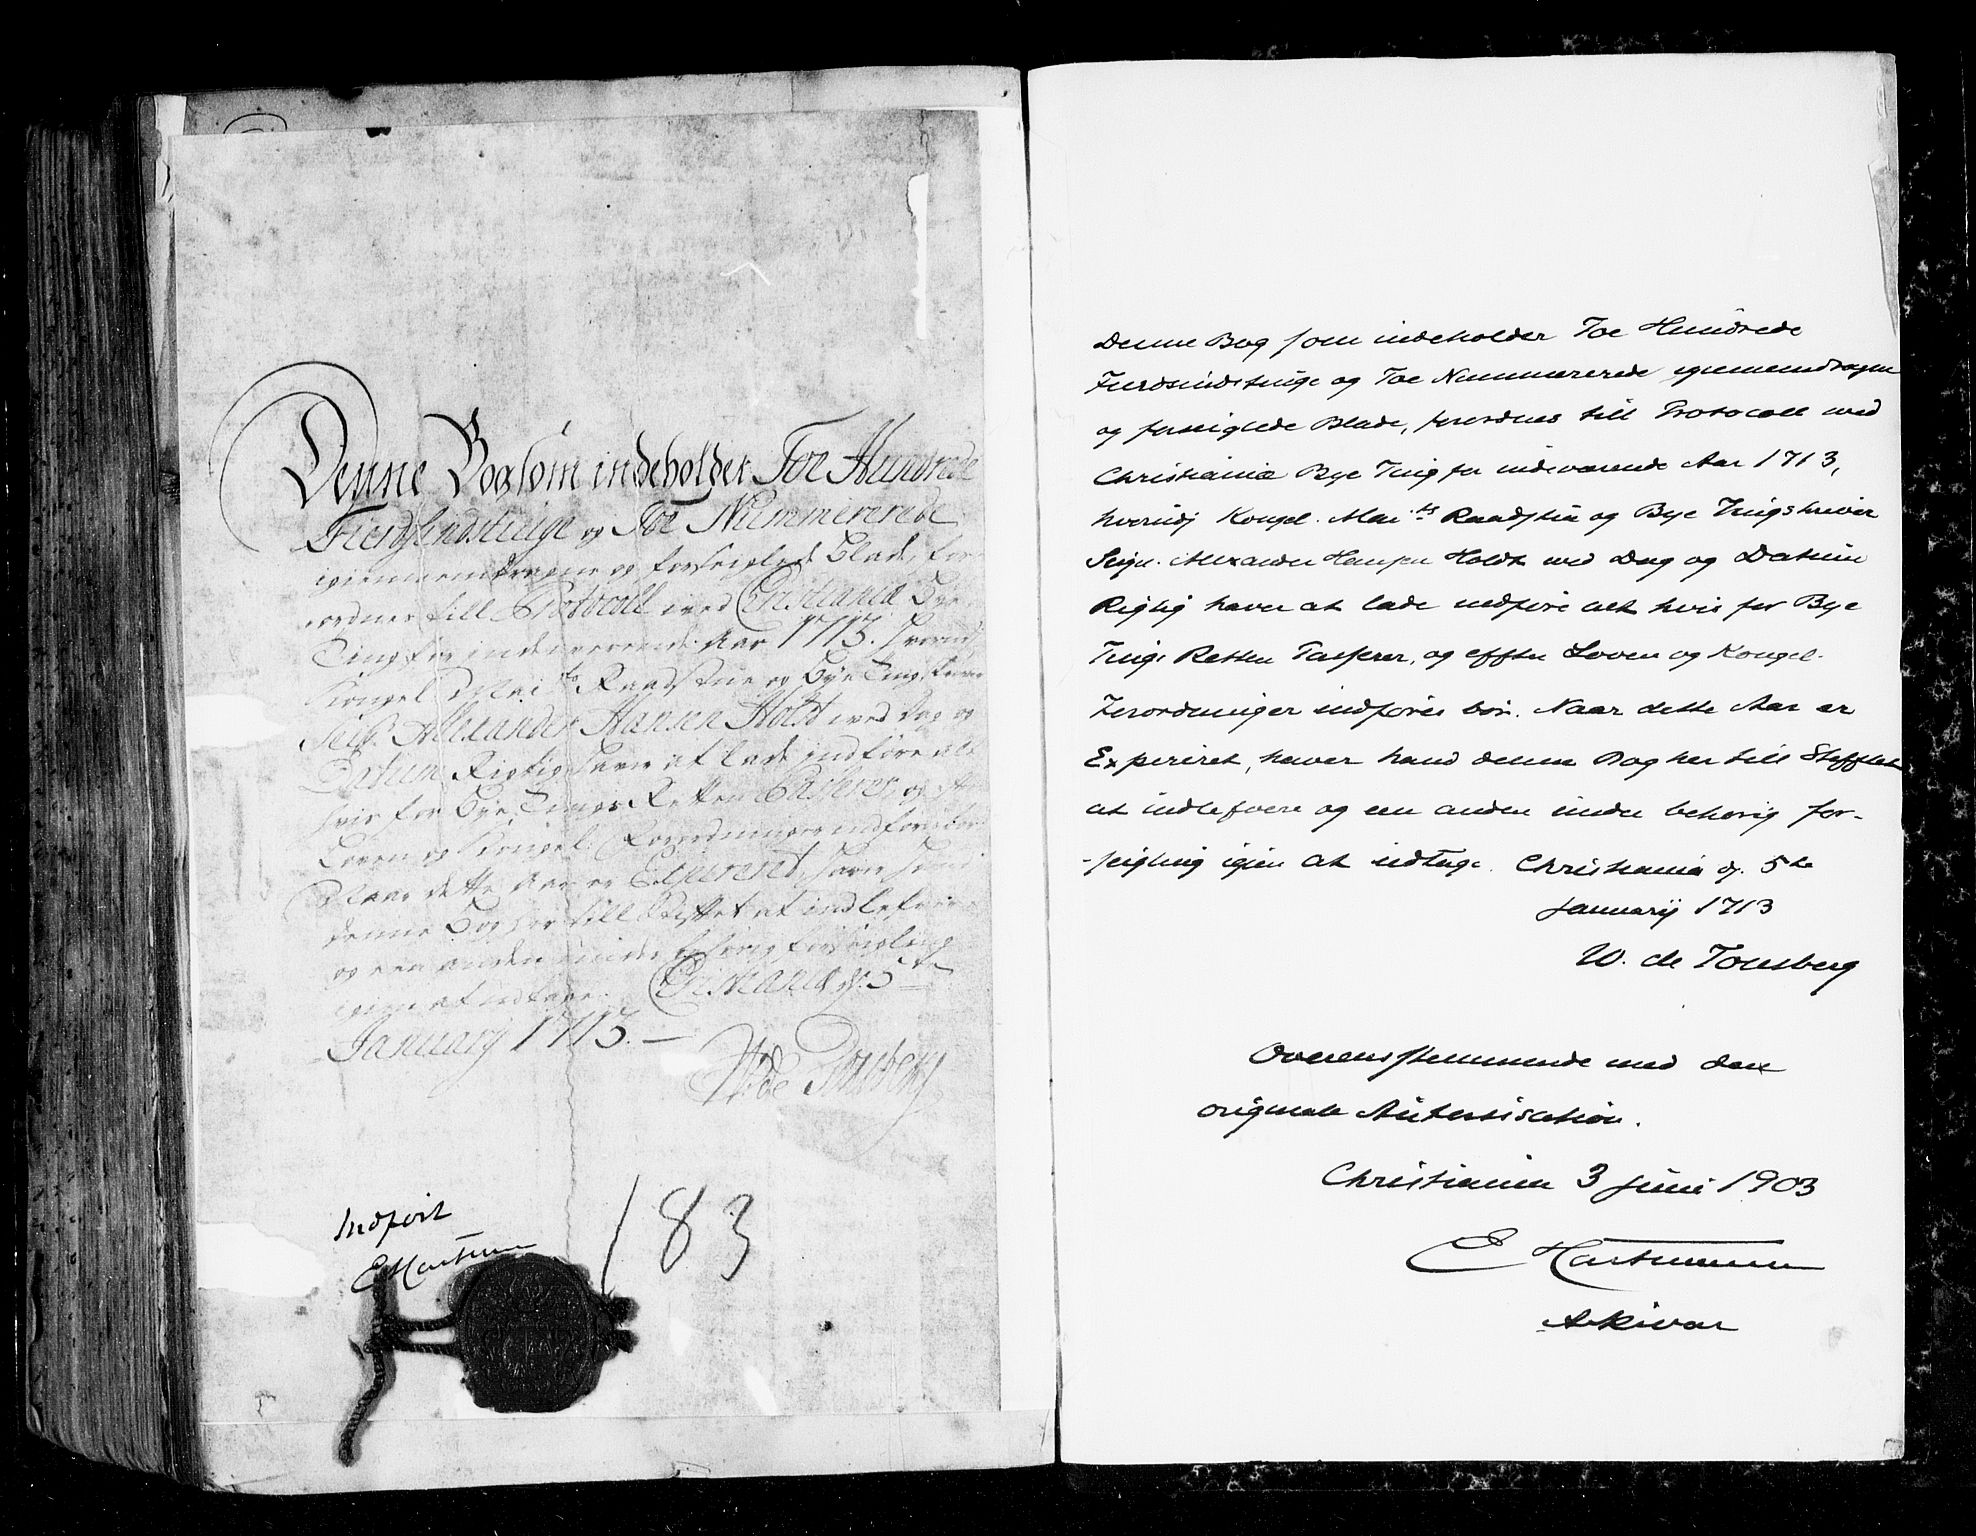 Denne Bog som indeholder Toe Hundrede
Fierdsindstiuge og Toe Nummererede
igiennemdragne og forseiglede Blade, for-
ordnes till Protocoll wed Christiania Bye
Ting for indeværende Aar 1713. hvorudj
Kongel. Mai.ts Raadstue og Bye Tingskriver
Seigr. Alexander Hansen Holdt wed Dag og
Datum Rigtig haver at lade indføre alt
hvis for Bye Tings Retten Passerer, og effter
Loven og Kongel. Forordninger indføres bør.
Naar dette Aar er Expereret, haver hand
denne Bog her till Stifftet at indlefvere
og een anden under behørig forseigling
igien at indtage. Christiania d. 5te
January 1713.
W. de Tonsberg
Indført
E Hartmann
183
Denne Bog som indeholder Toe Hundrede
Fierdsindstiuge og Toe Nummererede igiennemdragne
og forseiglede Blade, forordnes till Protocoll wed
Christiania Bye Ting for indeværende Aar 1713,
hvorudj Kongel. Mai.ts Raadstue og Bye Tingskriver
Seigr. Alexander Hansen Holdt wed Dag og Datum
Rigtig haver at lade indføre alt hvis for Bye
Tings Retten Passerer, og effter Loven og Kongel.
Forordninger indføres bør. Naar dette Aar er
Experiret, haver hand denne Bog her till Stifftet
at indlefvere og een anden under behørig for-
-seigling igien at indtage. Christiania d. 5te
Januarij 1713
W. de Tonsberg
Overensstemmende med den
originale Autorisation.
Christiania 3 Juni 1903
E Hartmann
Arkivar